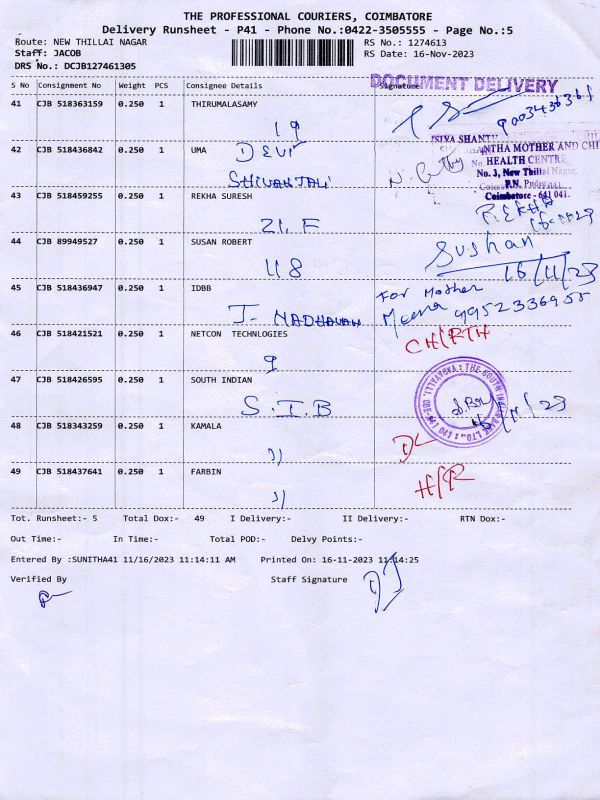 THE PROFESSIONAL COURIERS, COIMBATORE
Delivery Runsheet - P41 - Phone No.:0422-3505555 - Page No.:5
Route: NEW THILLAI NAGAR RS No.: 1274613
Staff: JACOB RS Date: 16-Nov-2023
DRS No.: DCJB127461305
S No Consignment No Weight PCS Consignee Details Signature
DOCUMENT DELIVERY
41 CJB 518363159 0.250 1 THIRUMALASAMY
19
42 CJB 518436842 0.250 1 UMA DEVI
HEALTH CENTRE
No. 3, New Thillai Nagar,
Coimbatore - 641 041.
43 CJB 518459255 0.250 1 REKHA SURESH
REKHA
44 CJB 89949527 0.250 1 SUSAN ROBERT
118
Sushan
16/11/23
45 CJB 518436947 0.250 1 IDBB
For Mother
J. MADHAVAN Meena 9952336955
46 CJB 518421521 0.250 1 NETCON TECHNLOGIES
47 CJB 518426595 0.250 1 SOUTH INDIAN
S.I.B
48 CJB 518343259 0.250 1 KAMALA
DL
49 CJB 518437641 0.250 1 FARBIN
H/R
Tot. Runsheet:- 5 Total Dox:- 49 I Delivery:- II Delivery:- RTN Dox:-
Out Time:- In Time:- Total POD:- Delvy Points:-
Entered By :SUNITHA41 11/16/2023 11:14:11 AM Printed On: 16-11-2023 11:14:25
Verified By Staff Signature